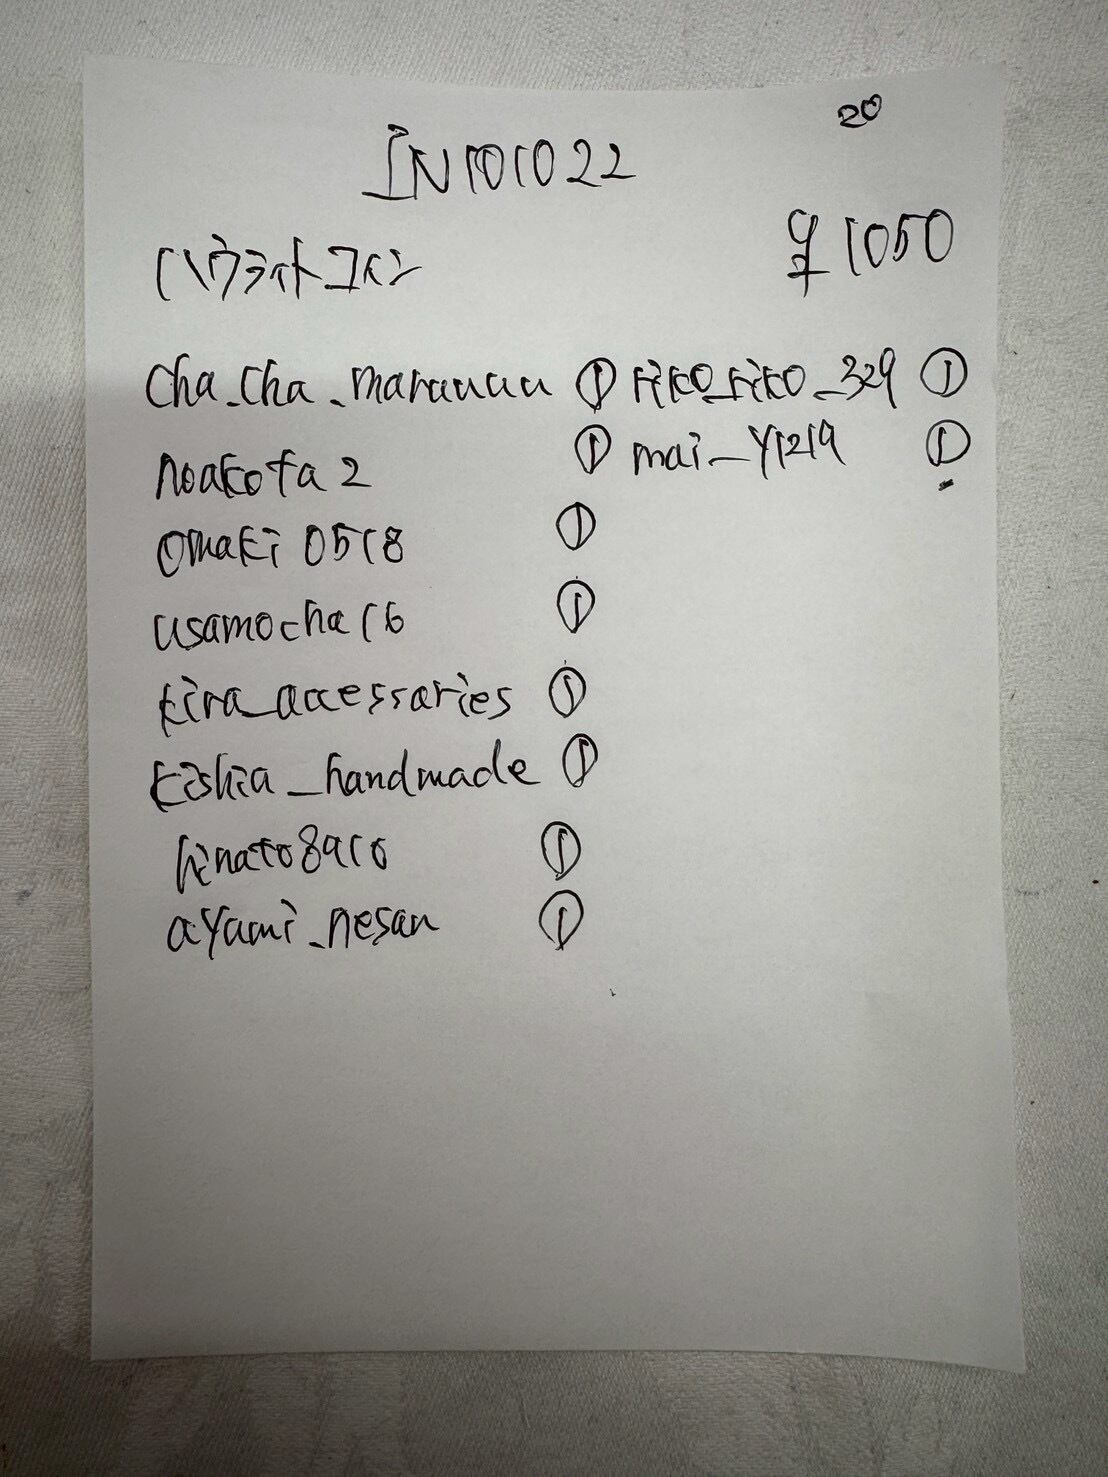 20
IN101022
ハウライトコイン
¥1050
cha_cha_maruuuu ①
riko_riko_329 ①
noakota2 ①
mai_y1219 ①
omaki0518 ①
usamocha16 ①
kira_accessaries ①
kishia_handmade ①
hinato8910 ①
ayami_nesan ①